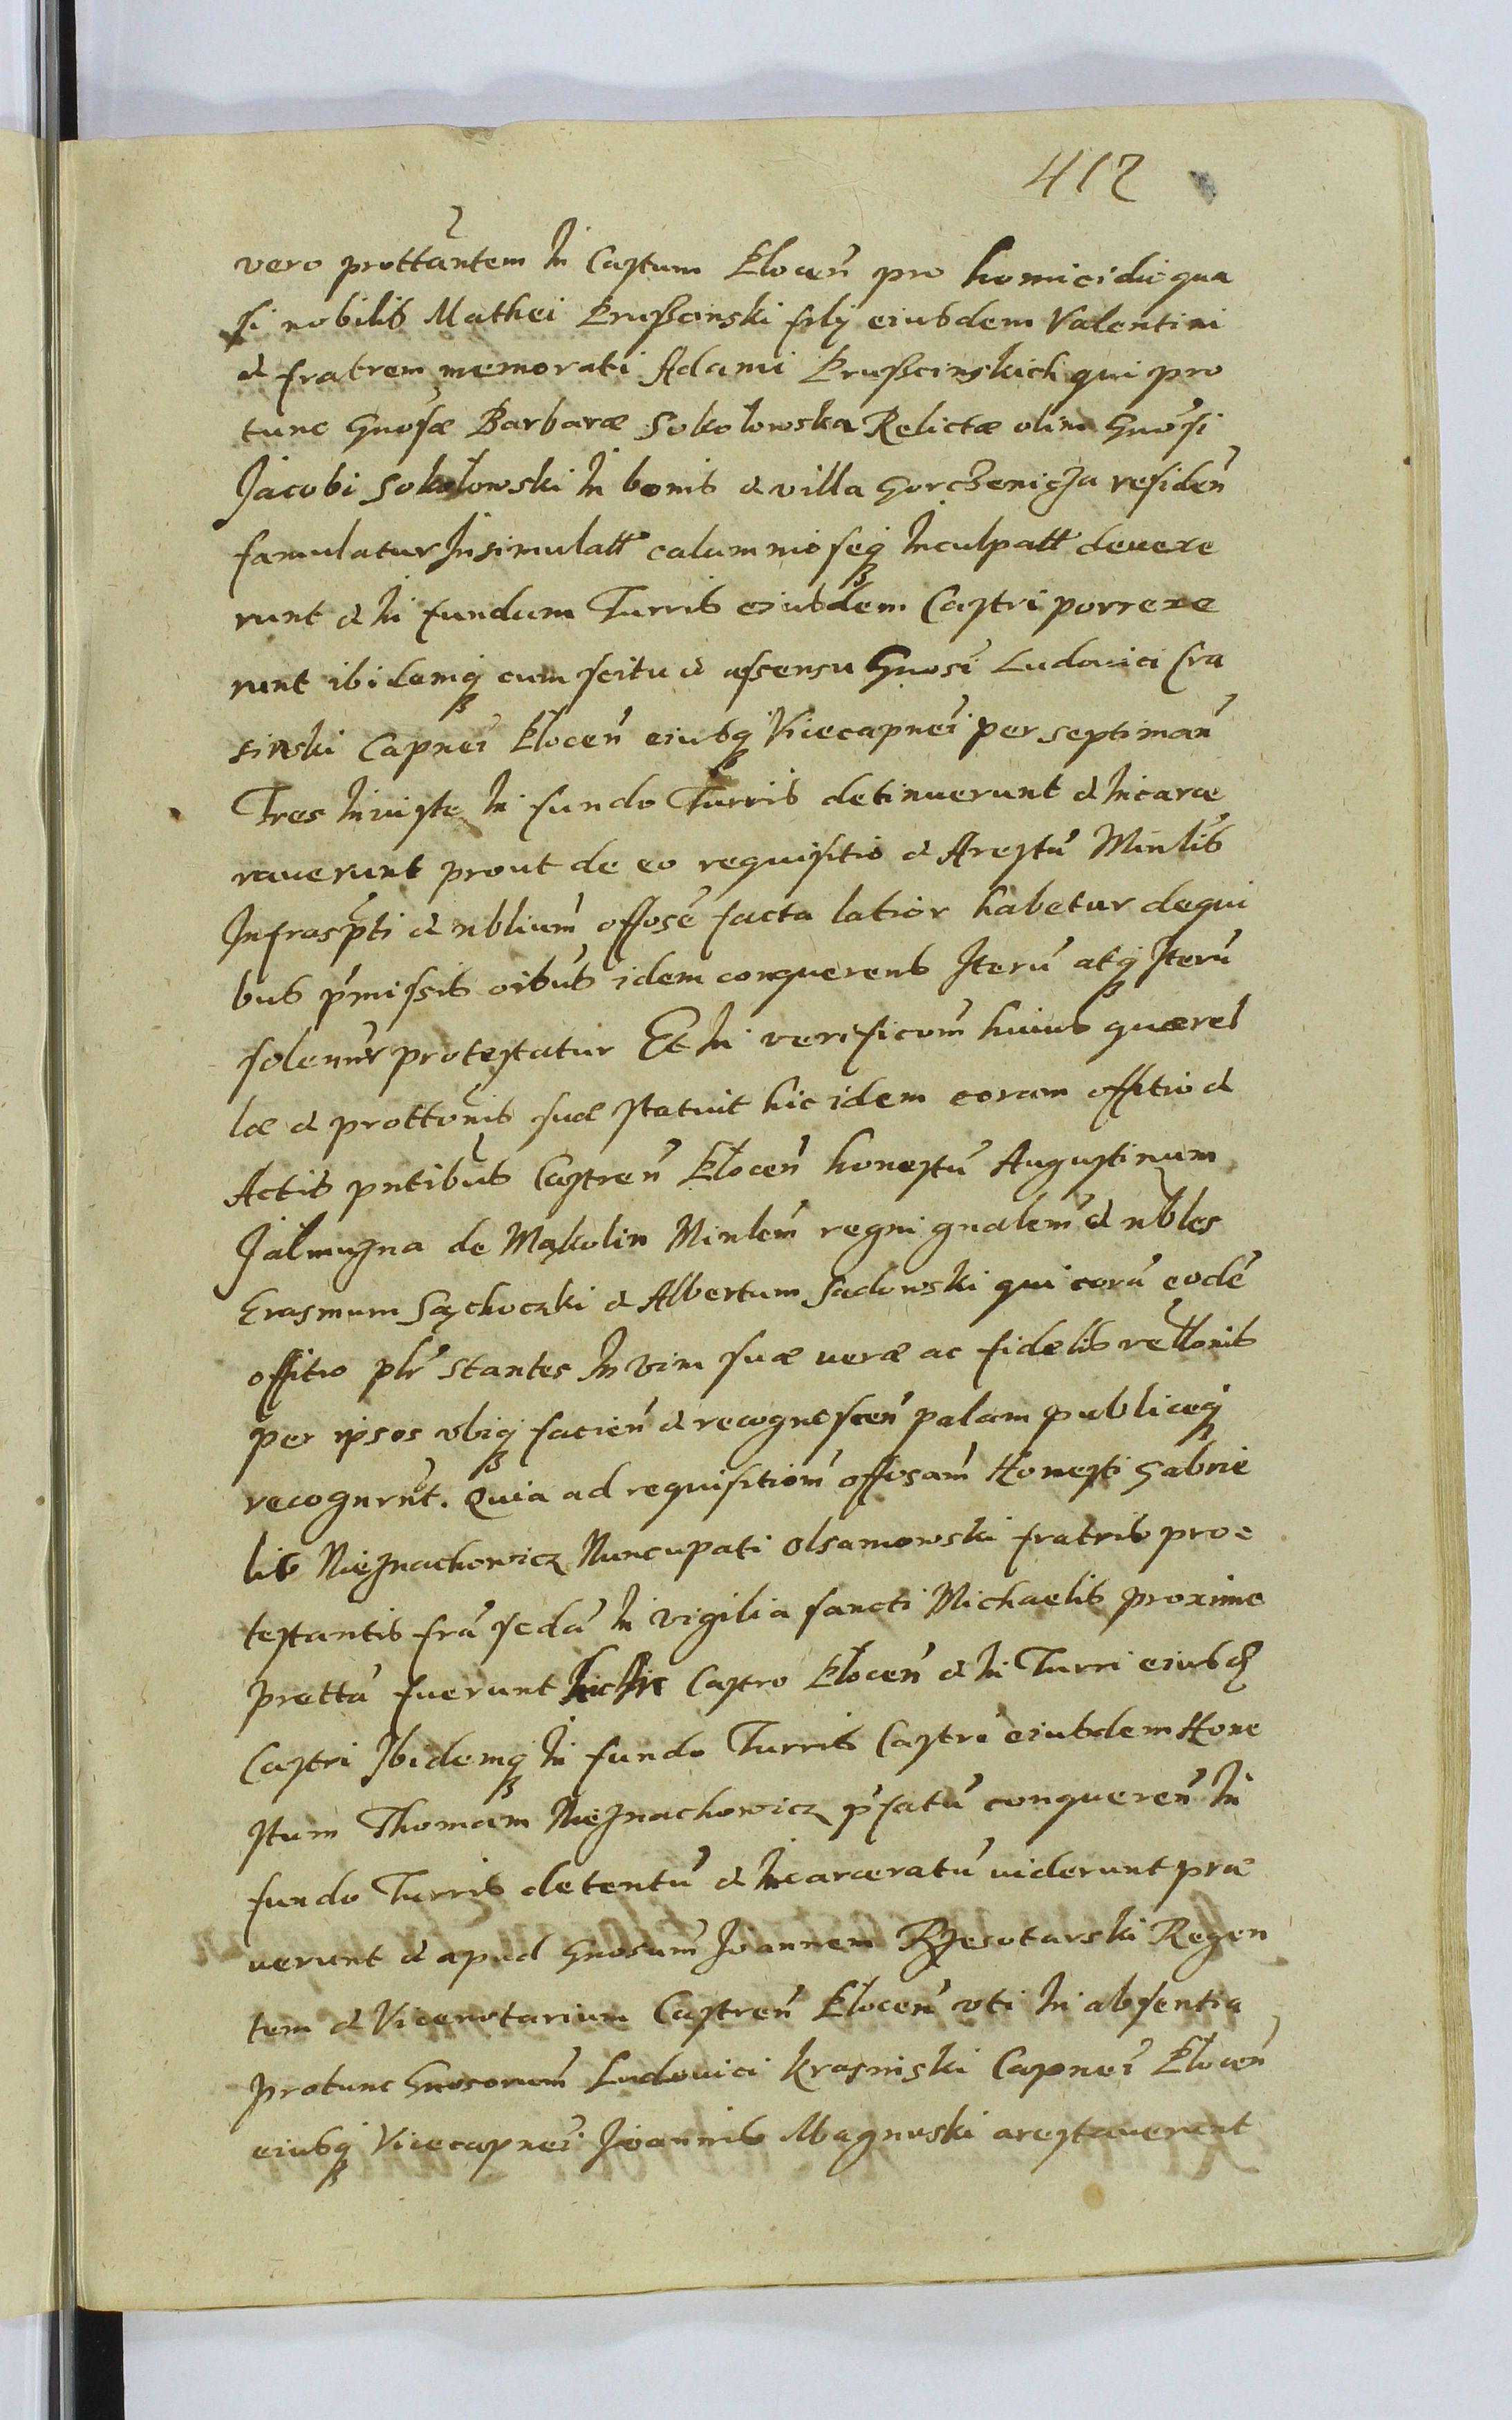 412
vero prottantem in Castum Plocen̄ pro homicidio qua
si nobilis Mathei Prusscinski filij eiusdem Valentini
& fratrem memorati Adami Prusscinskich qui pro
tunc Gnosæ Barbaræ Sokołowska Relictæ olim Gnosi
Jacobi Sokołowski in bonis & villa Gorczeniza residen̄
famulatur Insimulatt calumnioseq inculpatt devexe
runt & in fundum Turris eiusdem Castri porrexe
runt ibidemq cum scitu & assensu Gnosi Ludovici Cra
sinski Capnei Plocen̄ eiusq Vicecapnei per septiman̄
Tres Iniuste in fundo Turris detinuerunt & Incarce
raverunt prout de eo requisitio & Arestū Minlis
Infrasp̄ti & nblium̄ offose facta latior habetur de qui
bus p̄missis oibus idem conquerens Iterū atq Iterū
solennr̄ protestatur Et in verificom̄ huius quærel
læ & prottonis suæ statuit hic idem coram offitio &
Actis pntibus Castren̄ Plocen̄ honestū Augustinum
Jalmuzna de Makolin Minlem̄ regni gnalem̄ & nbles
Erasmum Sąchoczki & Albertum Sadowski qui corā eodē
offitio plr̄ stantes In vim suæ veræ ac fidelis rellonis
per ipsos ubiq facien̄ & recognoscen̄ palam publiceq
recognrnt. Quia ad requisitiom̄ offosam̄ Honesti Gabrie
lis Nieznachowicz Nuncupati Olsamowski fratris pro=
testantis frā sedā in vigilia sancti Michaelis proxime
prettā fuerunt hic in Castro Plocen̄ & in Turri eiusd
Castri Ibidemq in fundo Turris Castri eiusdem Hone
stum Thomam Nieznachowicz p̄fatū conqueren̄ in
fundo Turris detentū & Incarceratū viderunt præ
verunt & apud Gnosum̄ Joannem Rzesotarski Regen
tem & Vicenotarium Castren̄ Plocen̄ uti in absentia
protunc Gnosorum̄ Ludovici Krasinski Capnei Plocen̄
eiusq Vicecapnei Joannis Magnuski arestaverunt